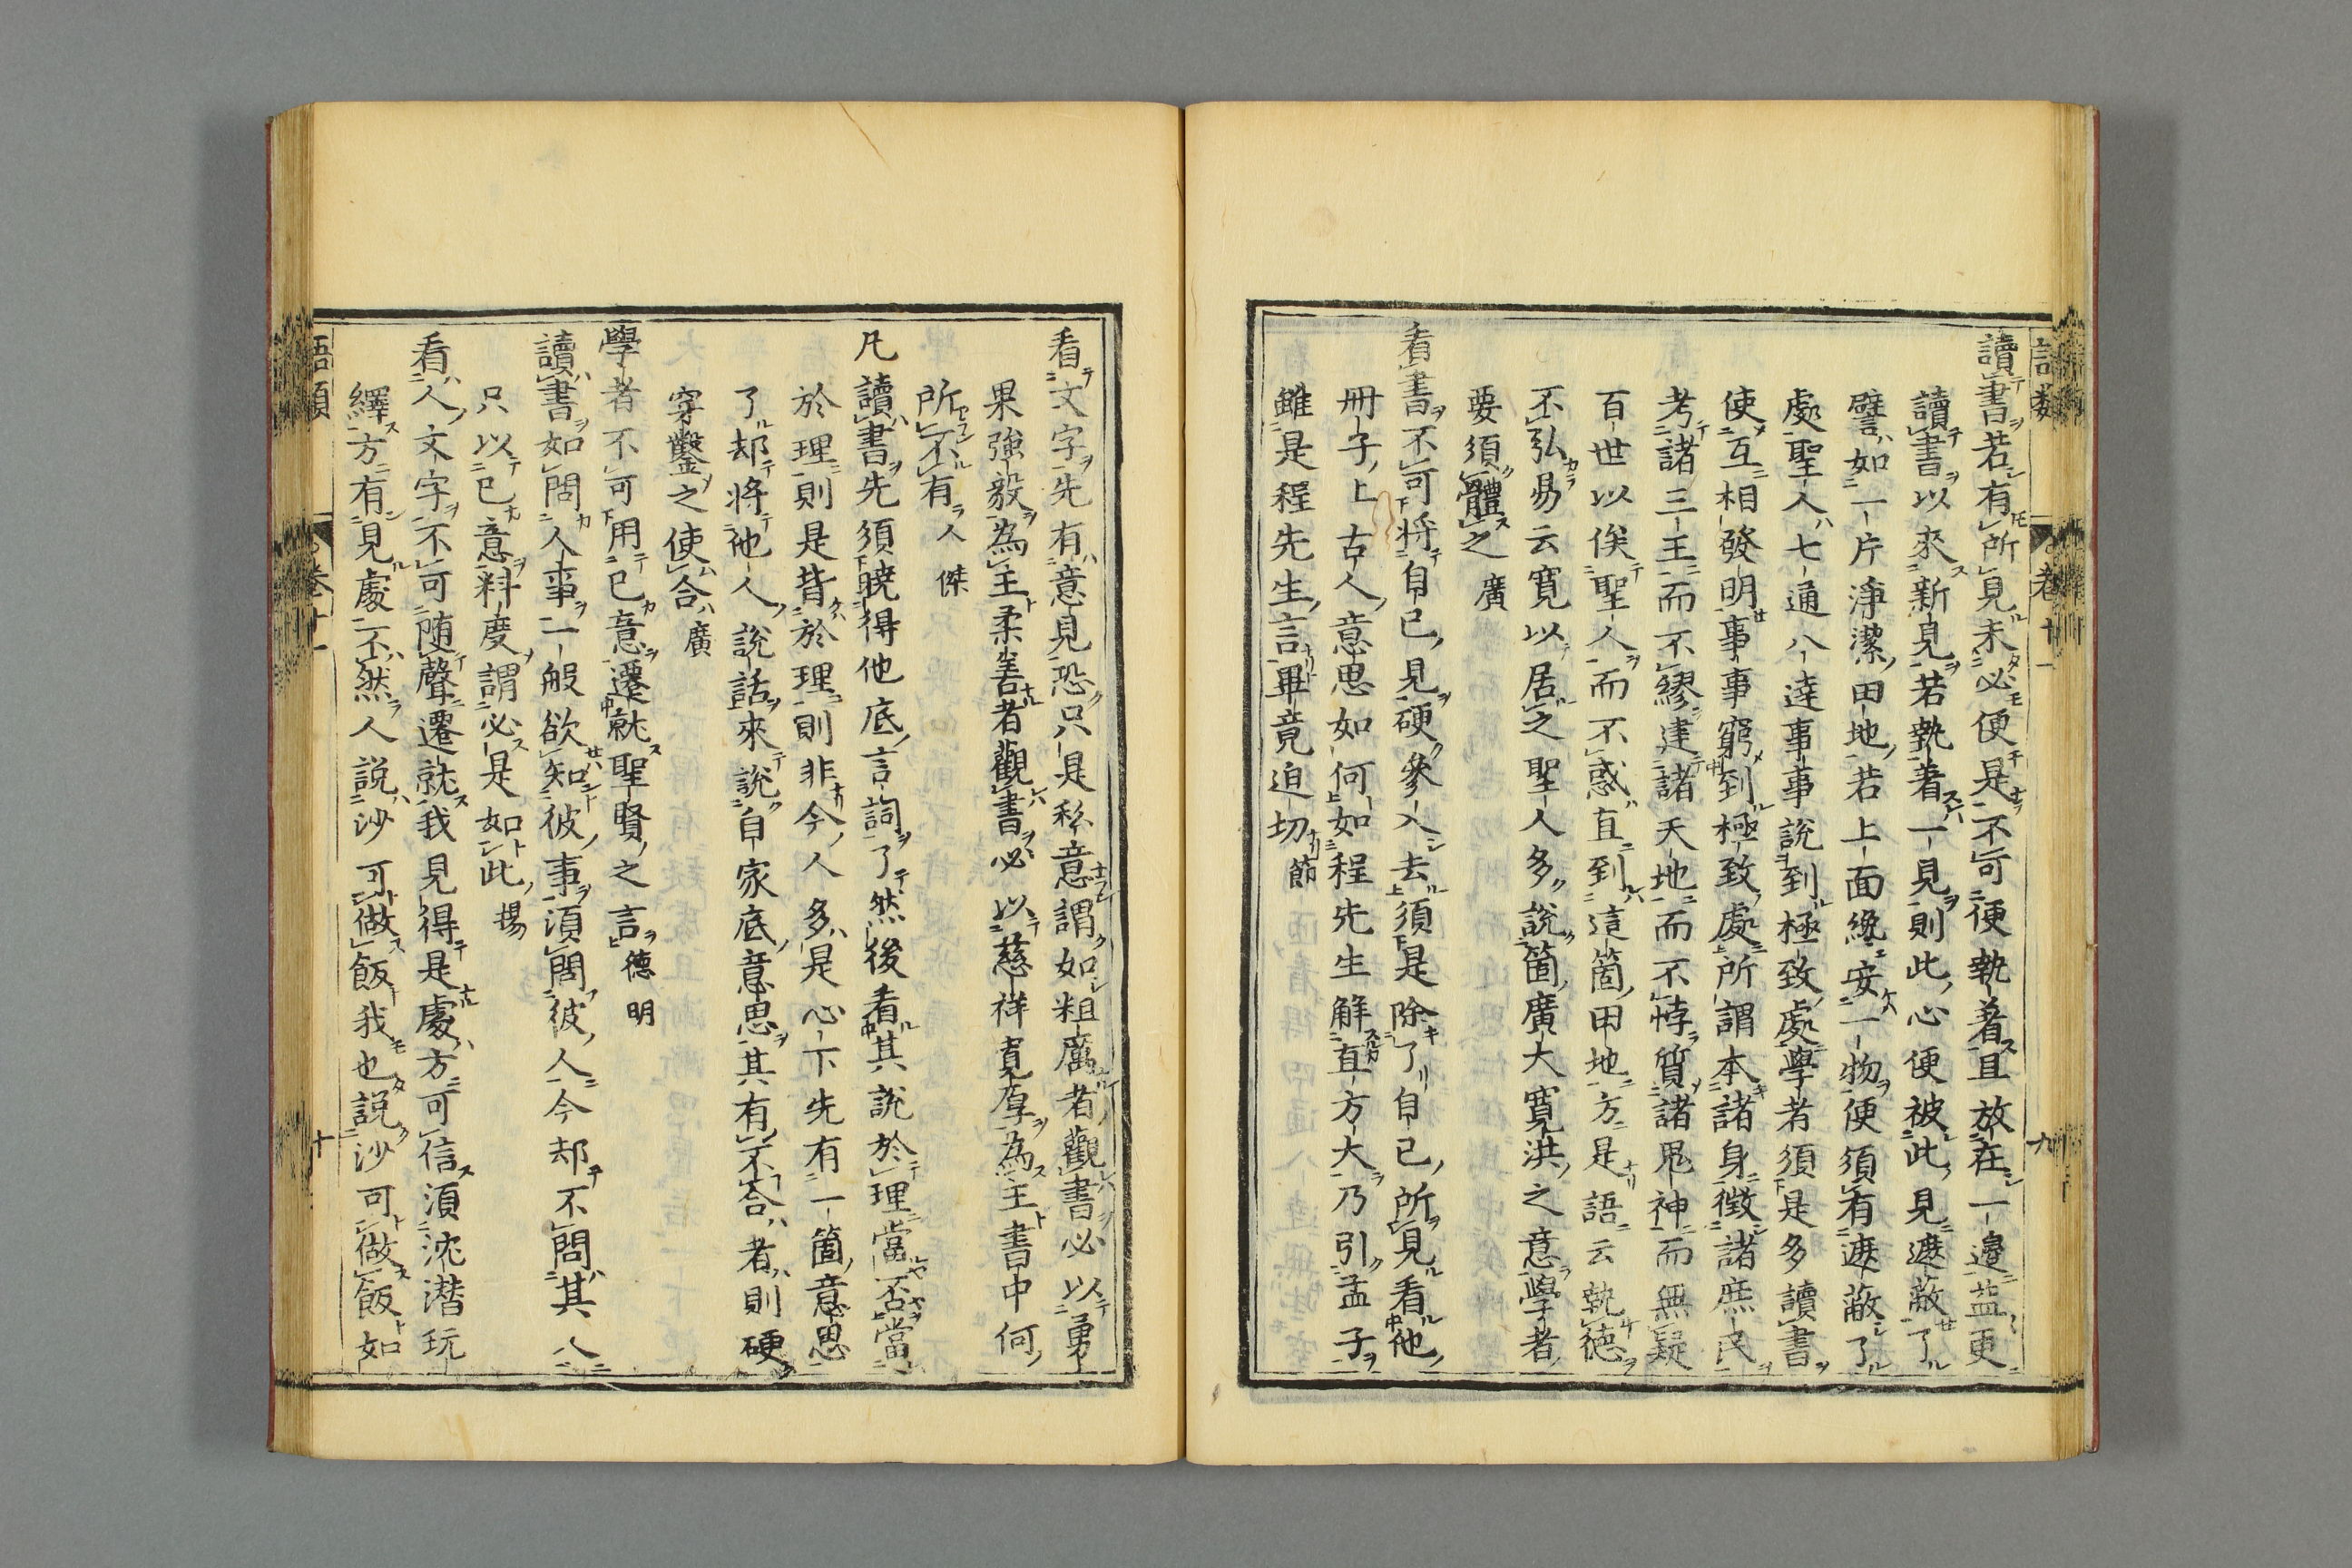 語類 卷十一 九
讀書若有所見未必便是不可便執着且放在一邊益更
讀書以來新見若執着一見則此心便被此見遮蔽了
譬如一片淨潔田地若上面纔安一物便須有遮蔽了
處聖人七通八達事事說到極致處學者須是多讀書
使互相發明事事窮到極致處所謂本諸身徵諸庶民
考諸三王而不繆建諸天地而不悖質諸鬼神而無疑
百世以俟聖人而不惑直到這箇田地方是語云執德
不弘易云寬以居之聖人多說箇廣大寬洪之意學者
要須體之廣
看書不可將自己見硬參入去須是除了自己所見看他
冊子上古人意思如何如程先生解直方大乃引孟子
雖是程先生言畢竟迫切節
看文字先有意見恐只是私意謂如粗厲者觀書必以勇
果強毅為主柔善者觀書必以慈祥寬厚為主書中何
所不有人傑
凡讀書先須曉得他底言詞了然後看其說於理當否當
於理則是背於理則非今人多是心下先有一箇意思
了却將他人說話來說自家底意思其有不合者則硬
穿鑿之使合廣
學者不可用己意遷就聖賢之言德明
讀書如問人事一般欲知彼事須問彼人今却不問其人
只以己意料度謂必是如此揚
看人文字不可随聲遷就我見得是處方可信須沈潛玩
繹方有見處不然人説沙可做飯我也説沙可做飯如
語類 卷十一 十